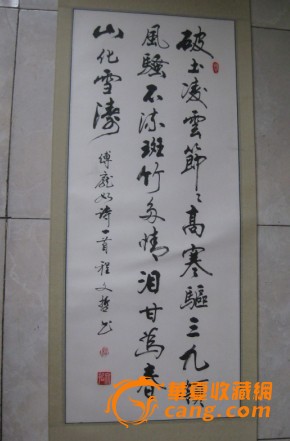 破土凌雲節〻高寒驅三九領
風騷不流斑竹多情淚甘為春
山化雪濤
傅龐如詩一首程文哲书
華夏收藏网
cang.com